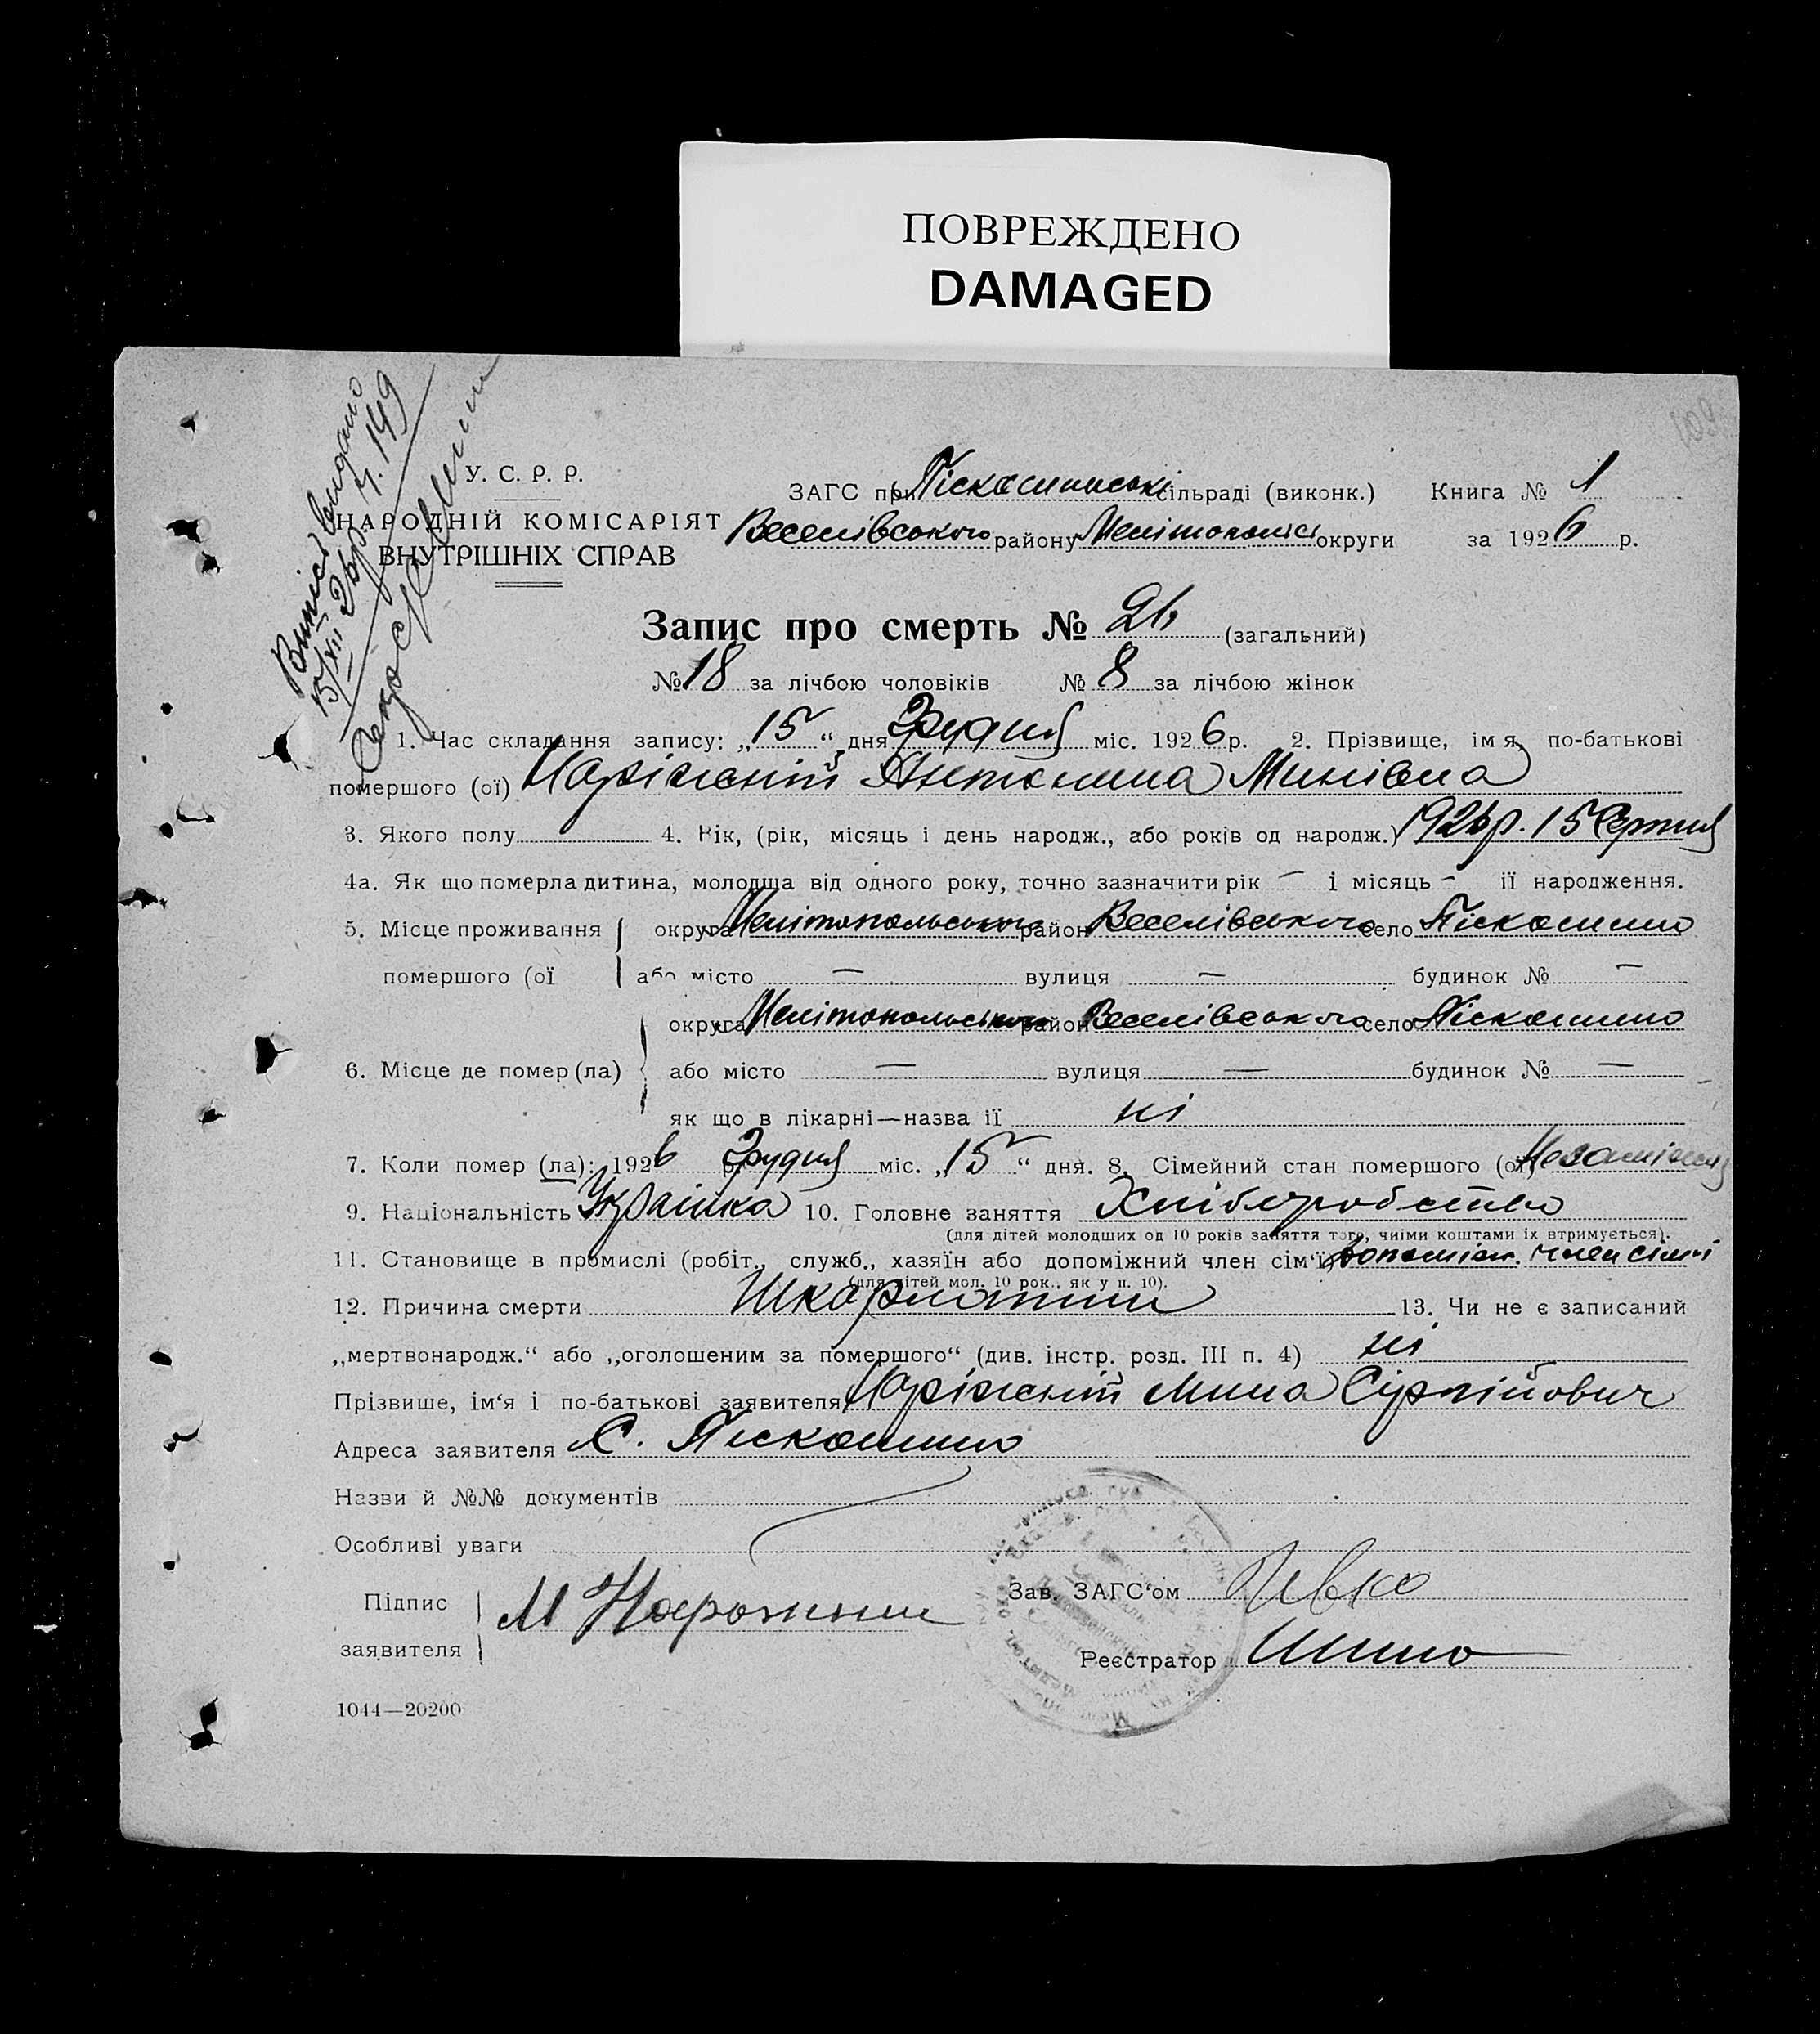 ПОВРЕЖДЕНО
DAMAGED
Випис видано
15/XII 26р. ч. 149
У. С. Р. Р.
НАРОДНІЙ КОМІСАРІЯТ
ВНУТРІШНІХ СПРАВ
ЗАГС при Піскошинські сільраді (виконк.) Книга № 1
Веселівського району Мелітопольс округи за 1926 р.
Запис про смерть № 26 (загальний)
№ 18 за лічбою чоловіків № 8 за лічбою жінок
1. Час складання запису: „15“ дня Грудня міс. 1926 р. 2. Прізвище, імя, по-батькові
помершого (ої) Наріжній Антонина Минівна
3. Якого полу 4. Вік, (рік, місяць і день народж., або років од народж.) 1926р. 15 Серпня
4а. Як що померла дитина, молодша від одного року, точно зазначити рік — і місяць — її народження.
5. Місце проживання округа Мелітопольського район Веселівського село Піскошино
помершого (ої або місто — вулиця — будинок № —
округа Мелітопольського район Веселівського село Піскошино
6. Місце де помер (ла) або місто — вулиця — будинок № —
як що в лікарні—назва її ні
7. Коли помер (ла): 1926 р. Грудня міс. „15“ дня. 8. Сімейний стан помершого (ої) Незаміжня
9. Національність Українка 10. Головне заняття Хліборобство
(для дітей молодших од 10 років заняття того, чиїми коштами їх втримується).
11. Становище в промислі (робіт., служб., хазяїн або допоміжний член сім'ї) допоміжн. член сімї
(для дітей мол. 10 рок., як у п. 10).
12. Причина смерти Шкарлатини 13. Чи не є записаний
„мертвонародж.“ або „оголошеним за помершого“ (див. інстр. розд. III п. 4) ні
Прізвище, ім'я і по-батькові заявителя Наріжній Мина Сірпійович
Адреса заявителя С. Піскошино
Назви й №№ документів
Особливі уваги
Підпис
заявителя М Нарожний
Зав. ЗАГС'ом
Реєстратор
1044—20200